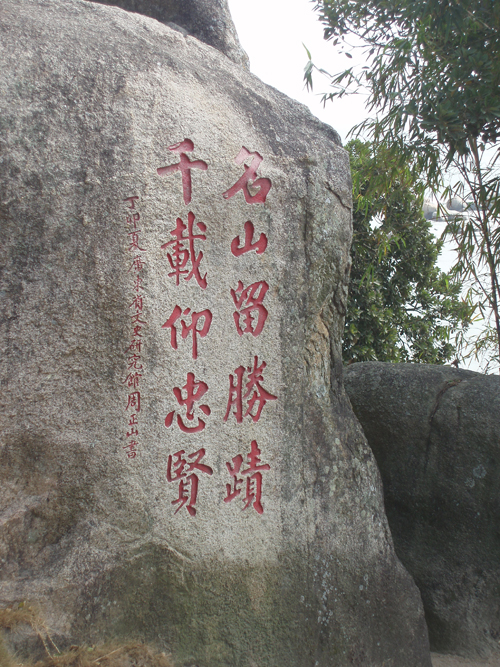 名山留勝蹟
千載仰忠賢
丁卯夏廣東省文史研究館周正山書